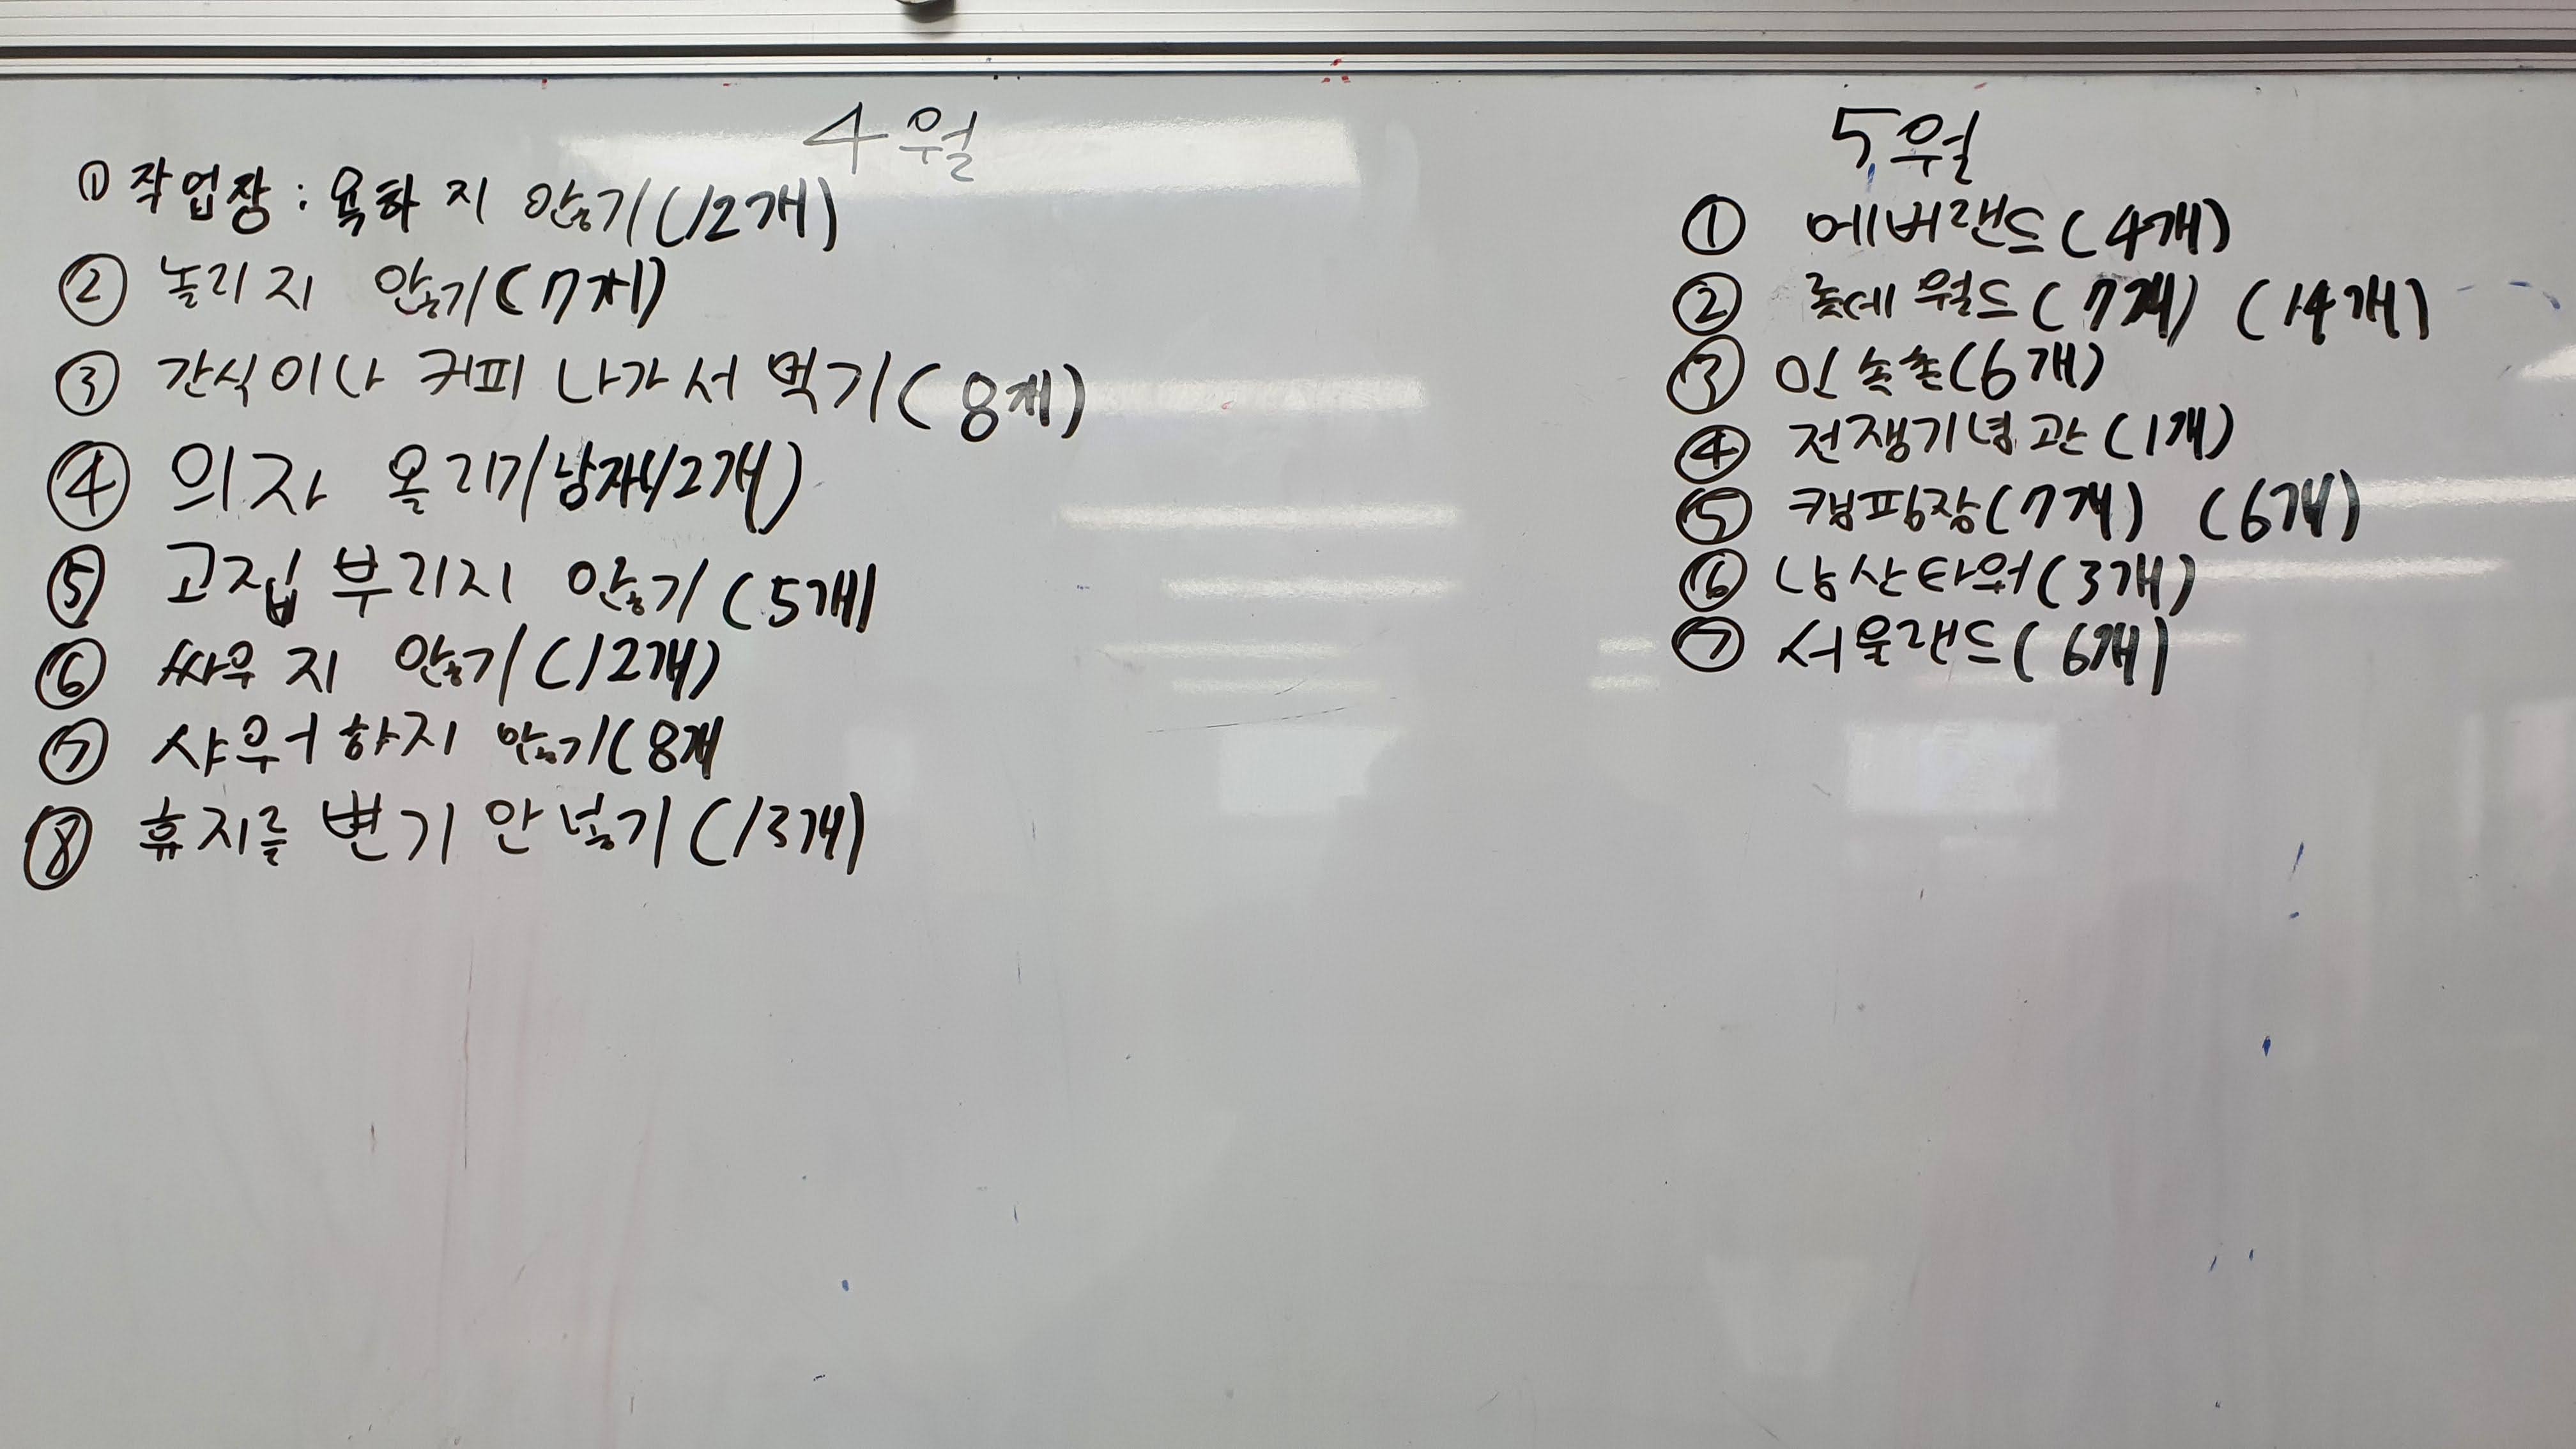 4월
① 작업장 : 욕하지 않기(12개)
② 놀리지 않기(7개)
③ 간식이나 커피 나가서 먹기(8개)
④ 의자 올리기/남자(12개)
⑤ 고집부리지 않기(5개)
⑥ 싸우지 않기(12개)
⑦ 샤우어하지 않기(8개
⑧ 휴지를 변기 안 넣기(13개)
5월
① 에버랜드(4개)
② 롯데월드(7개) (14개)
③ (6개)
④ 전쟁기념관(1개)
⑤ 캠핑장(7개) (6개)
⑥ 남산타워(3개)
⑦ 서울랜드(6개)